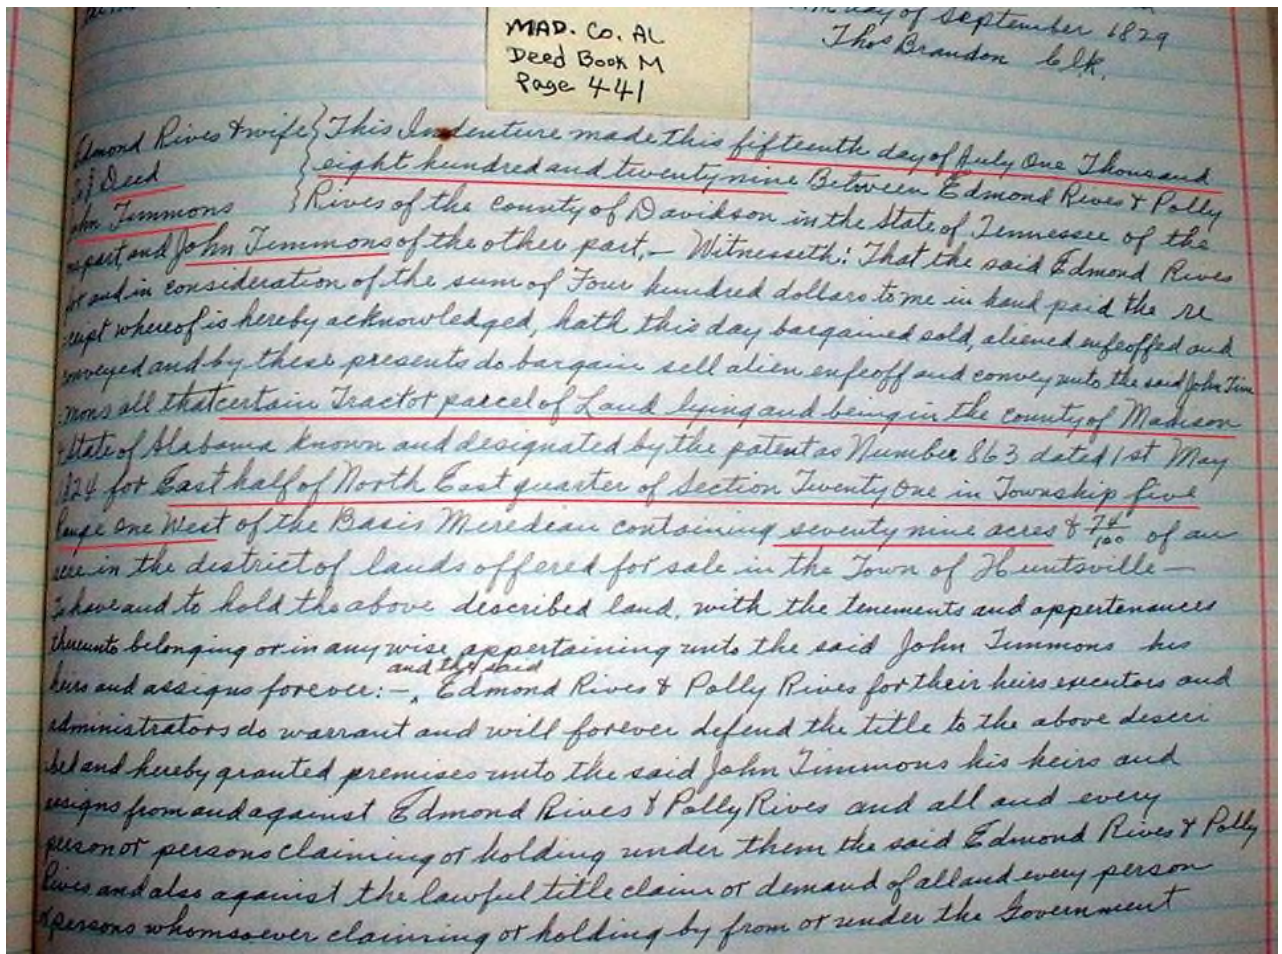 day of September 1829
Thos Brandon Clk.
MAD. Co. AL
Deed Book M
Page 441
Edmond Rives & wife } This Indenture made this fifteenth day of July One Thousand
To } Deed { eight hundred and twenty nine Between Edmond Rives & Polly
John Timmons { Rives of the county of Davidson in the State of Tennessee of the
one part, and John Timmons of the other part, – Witnesseth: That the said Edmond Rives
for and in consideration of the sum of Four hundred dollars to me in hand paid the re
-ceipt whereof is hereby acknowledged, hath this day bargained sold, aliened enfeoffed and
conveyed and by these presents do bargain sell alien enfeoff and convey unto the said John Tim
-mons all that certain Tract or parcel of Land lying and being in the county of Madison
& State of Alabama known and designated by the patent as Number 863 dated 1st May
1824 for East half of North East quarter of Section Twenty One in Township five
Range One West of the Basis Meredian containing seventy nine acres & 74/100 of an
acre in the district of lands offered for sale in the Town of Huntsville –
To have and to hold the above described land, with the tenements and appertenances
thereunto belonging or in any wise appertaining unto the said John Timmons his
heirs and assigns forever: – and the said Edmond Rives & Polly Rives for their heirs executors and
administrators do warrant and will forever defend the title to the above descri
-bed and hereby granted premises unto the said John Timmons his heirs and
assigns from and against Edmond Rives & Polly Rives and all and every
person or persons claiming or holding under them the said Edmond Rives & Polly
Rives and also against the lawful title claim or demand of all and every person
or persons whomsoever claiming or holding by from or under the Government